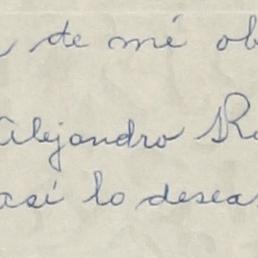 de mé ob
Alejandro Ro
así lo desea